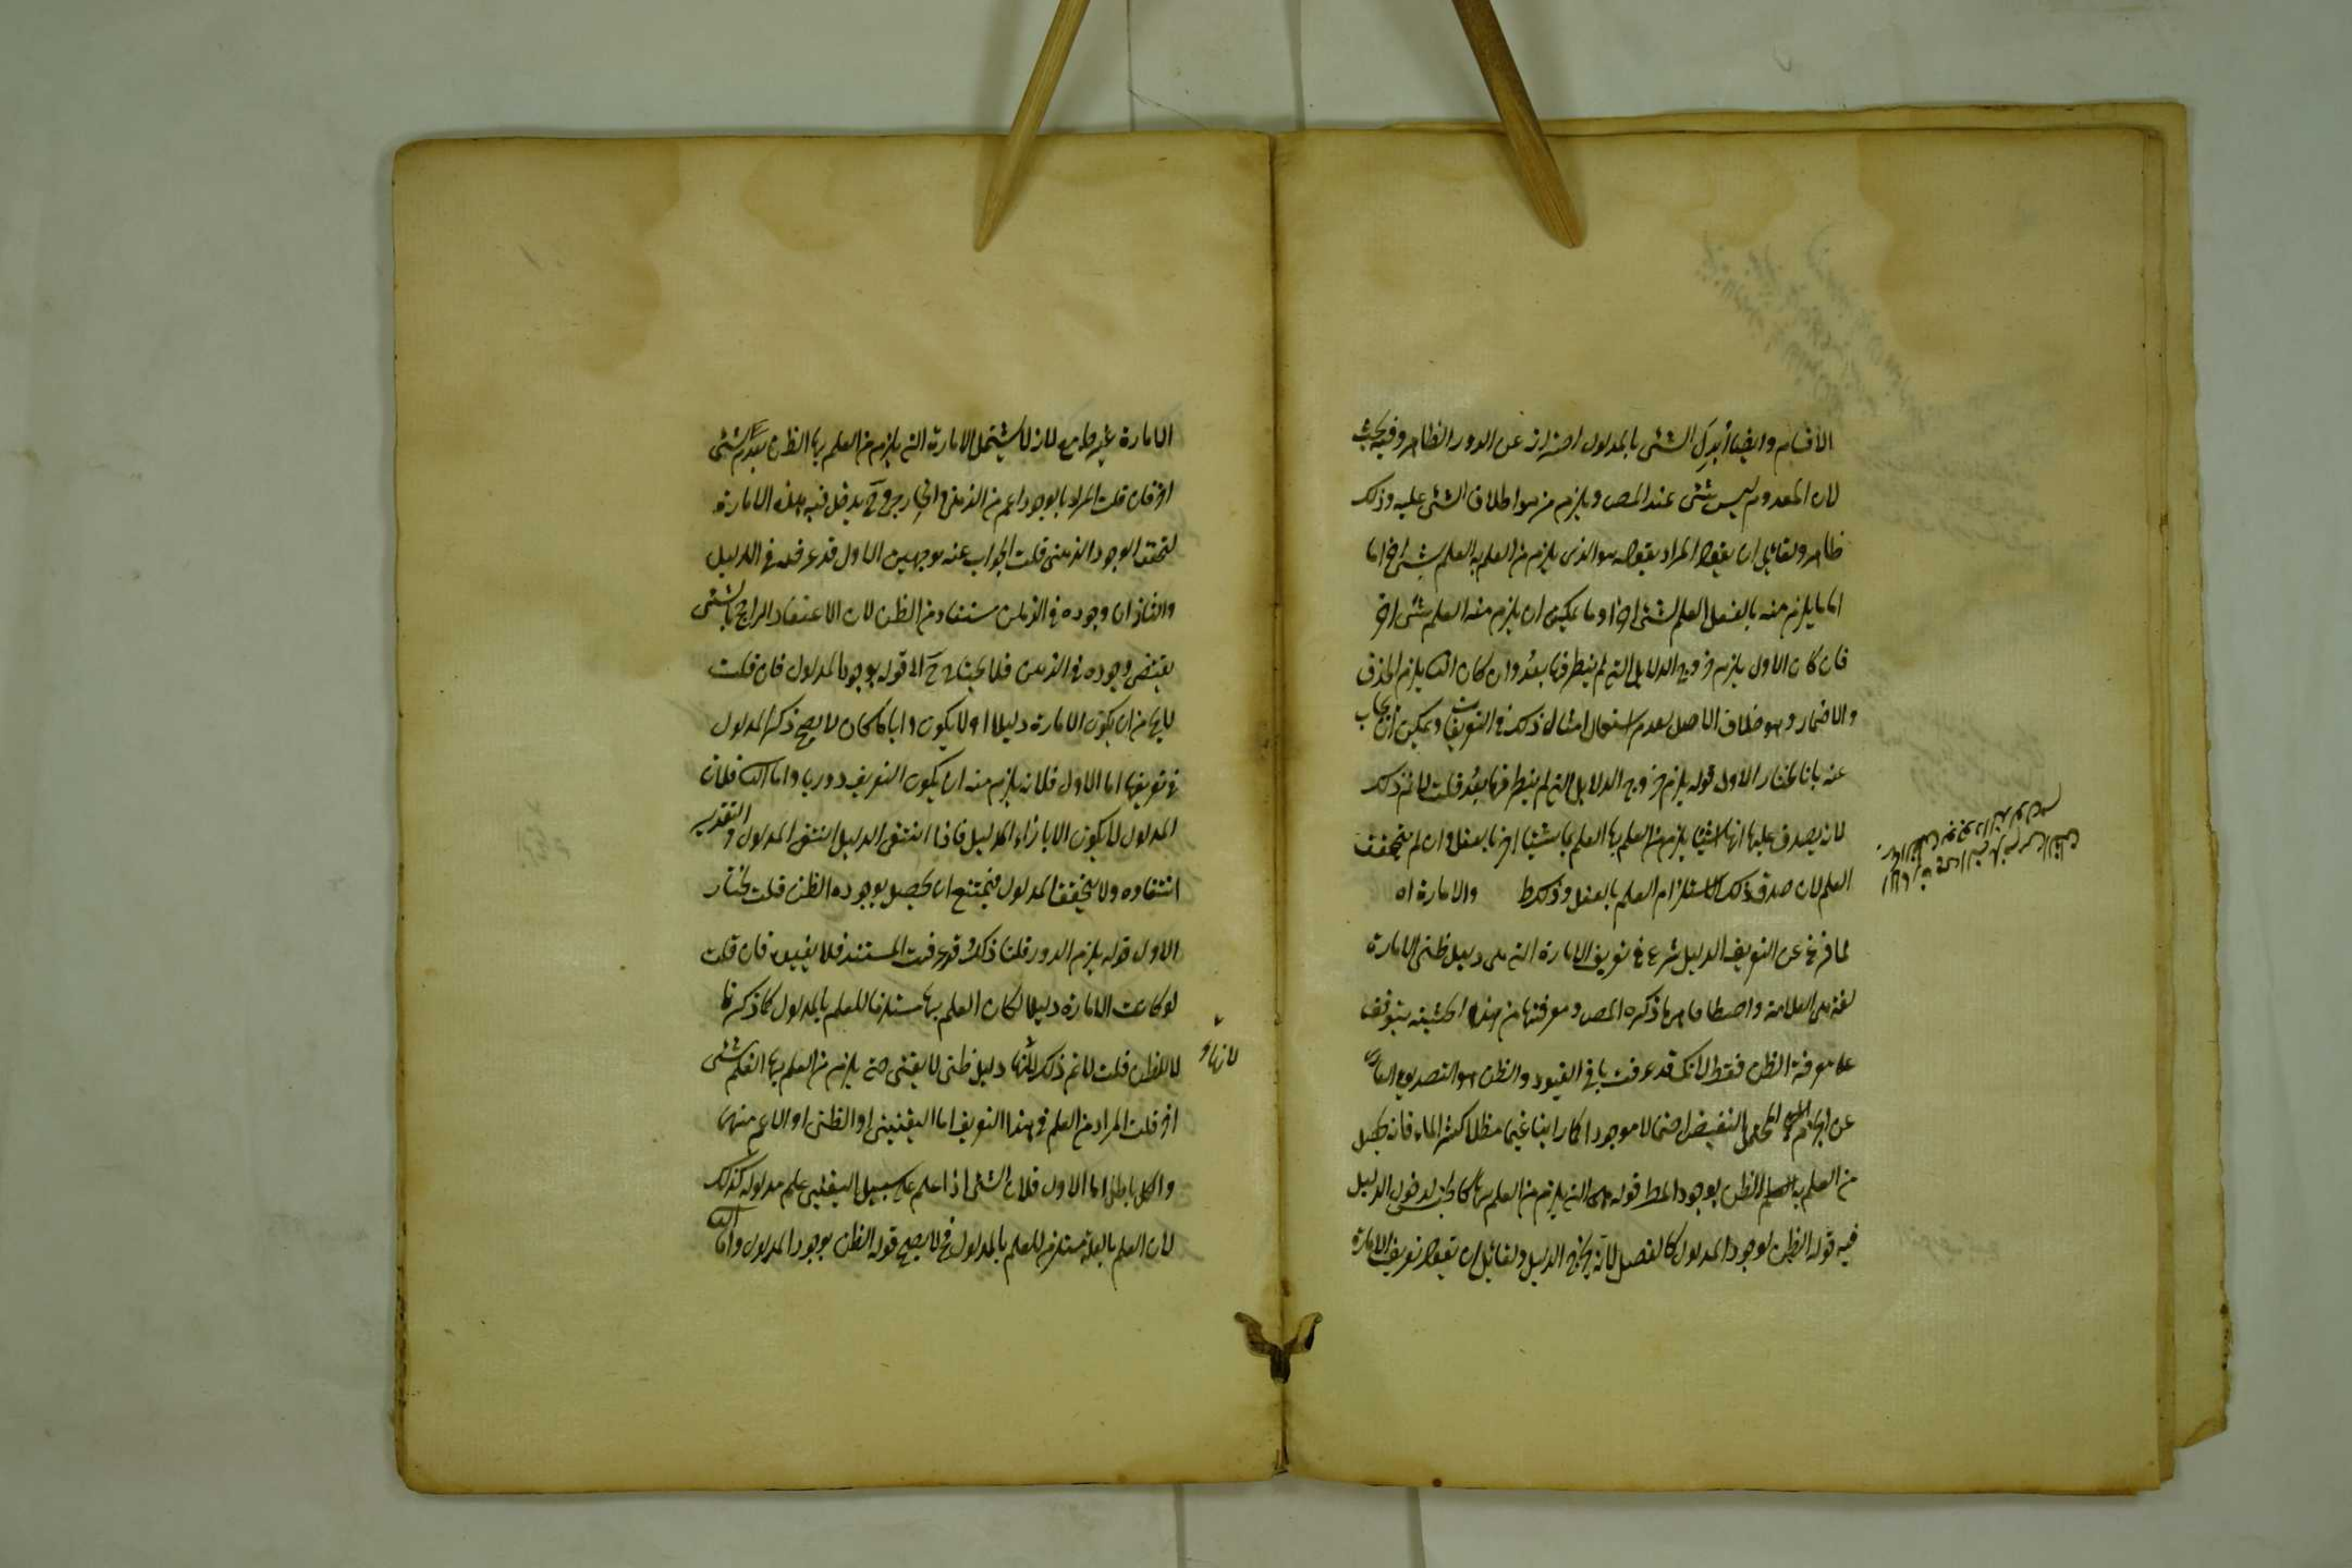 الاقسام وايضا أبدل الشئ بالمدلول احترازا عن الدور الظاهر وفيه بحث
لان المعدوم ليس بشئ عند المص ويلزم من هوا اطلاق الشئ عليه وذلك
ظاهر ولقائل ان يقول المراد بقوله هو الذى يلزم من العلم به العلم بشئ اخر اما
اما ما يلزم منه بالفعل العلم لشئ اخر او ما يمكن ان يلزم منه العلم بشئ اخر
فان كان الاول يلزم خروج الدلايل التى لم ينظر فيها بعد وان كان الثانى يلزم الحذف
والاضمار وهو خلاف الاصل لعدم استعمال امثال ذلك فى التعريفات ويمكن ان يجاب
عنه بانا نختار الاول قوله يلزم خروج الدلايل التى لم ينظر فيها بعد قلت لا نم ذلك
لانه يصدق عليها انها اشياء يلزم من العلم بها العلم باشياء اخر بالفعل وان لم يتحقق
العلم لان صدق ذلك الاستلزام العلم بالفعل وذلك ط والامارة اه
لما فرغ عن التعريف الدليل شرع فى تعريف الامارة التى هى دليل ظنى الامارة
لغة هى العلامة واصطلاحا ما ذكره المص ومعرفتها من هذا الحيثية يتوقف
على معرفة الظن فقط لانك قد عرفت باقى القيود والظن هو التصديق
عن الجازم المحتمل النقيض احتمالا موجودا كما راينا غيما مظلا كثير الماء فانه يحصل
من العلم به الظن بوجود المطر قوله هى التى يلزم من العلم بها كالجنس لدخول الدليل
فيه قوله الظن لوجود المدلول كالفصل لانه يخرج الدليل ولقائل ان يقول تعريف الامارة
الامارة غير جامع لانه لا يشتمل الامارة التى يلزم من العلم بها الظن بعدم شئ
اخر فان قلت المراد بالوجود اعم من الذهنى والخارجى وح يدخل فيه هذه الامارة
لتحقق الوجود الذهنى قلت الجواب عنه بوجهين الاول قد عرفته فى الدليل
والثانى ان وجوده فى الذهن مستفاد من الظن لان الاعتقاد الراجح بالشئ
يقتضى وجوده فى الذهن فلا يحتاج ح الى قوله بوجود المدلول فان قلت
لا يخ من ان يكون الامارة دليلا او لا يكون وايا ما كان لا يصح ذكر المدلول
فى تعريفها اما الاول فلانه يلزم منه ان يكون التعريف دوريا واما الثانى فلان
المدلول لا يكون الا بازاء الدليل فاذا انتفى الدليل انتفى المدلول والتقدير
انتفاءه ولا يتحقق المدلول فيمتنع ان يحصل بوجوده الظن قلت نختار
الاول قوله يلزم الدور قلنا ذلك قد عرفت المستند فلا نعيده فان قلت
لو كانت الامارة دليلا لكان العلم بها مستلزما للعلم بالمدلول كما ذكرنا
لا للظن قلت لا نم ذلك لانها دليل ظنى لا يقينى حتى يلزم من العلم بها العلم بشئ
لانها و
اخر قلت المراد من العلم فى هذا التعريف اما اليقينى او الظنى او الاعم منهما
والكل باطل اما الاول فلان الشئ اذا علم على سبيل اليقين علم مدلوله كذلك
لان العلم بالعلة مستلزم للعلم بالمدلول فح لا يصح قوله الظن بوجود المدلول واما الثانى